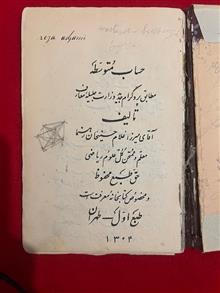 reza adhami
حساب متوسطه
مطابق پروگرام جدید وزارت جلیله معارف
تألیف
آقای میرزا غلامحسینخان رهنما
معلم و مفتش کل علوم ریاضی
حق طبع محفوظ
و مخصوص کتابخانه معرفت است
طبع اول - طهران
۱۳۰۴